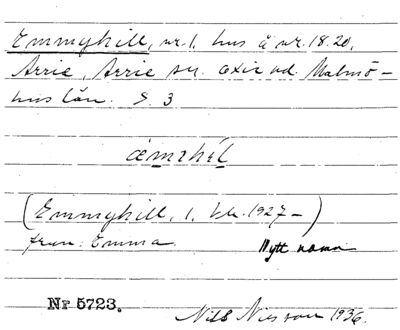 Emmyhill, nr. 1. hus å nr. 18.20,
Arrie, Arrie sn. Oxie hd. Malmö-
hus län. S. 3
emyhil
(Emmyhill, 1. bk. 1927-)
frun: Emma. Nytt namn
Nr 5723. Nils Nilsson 1936.